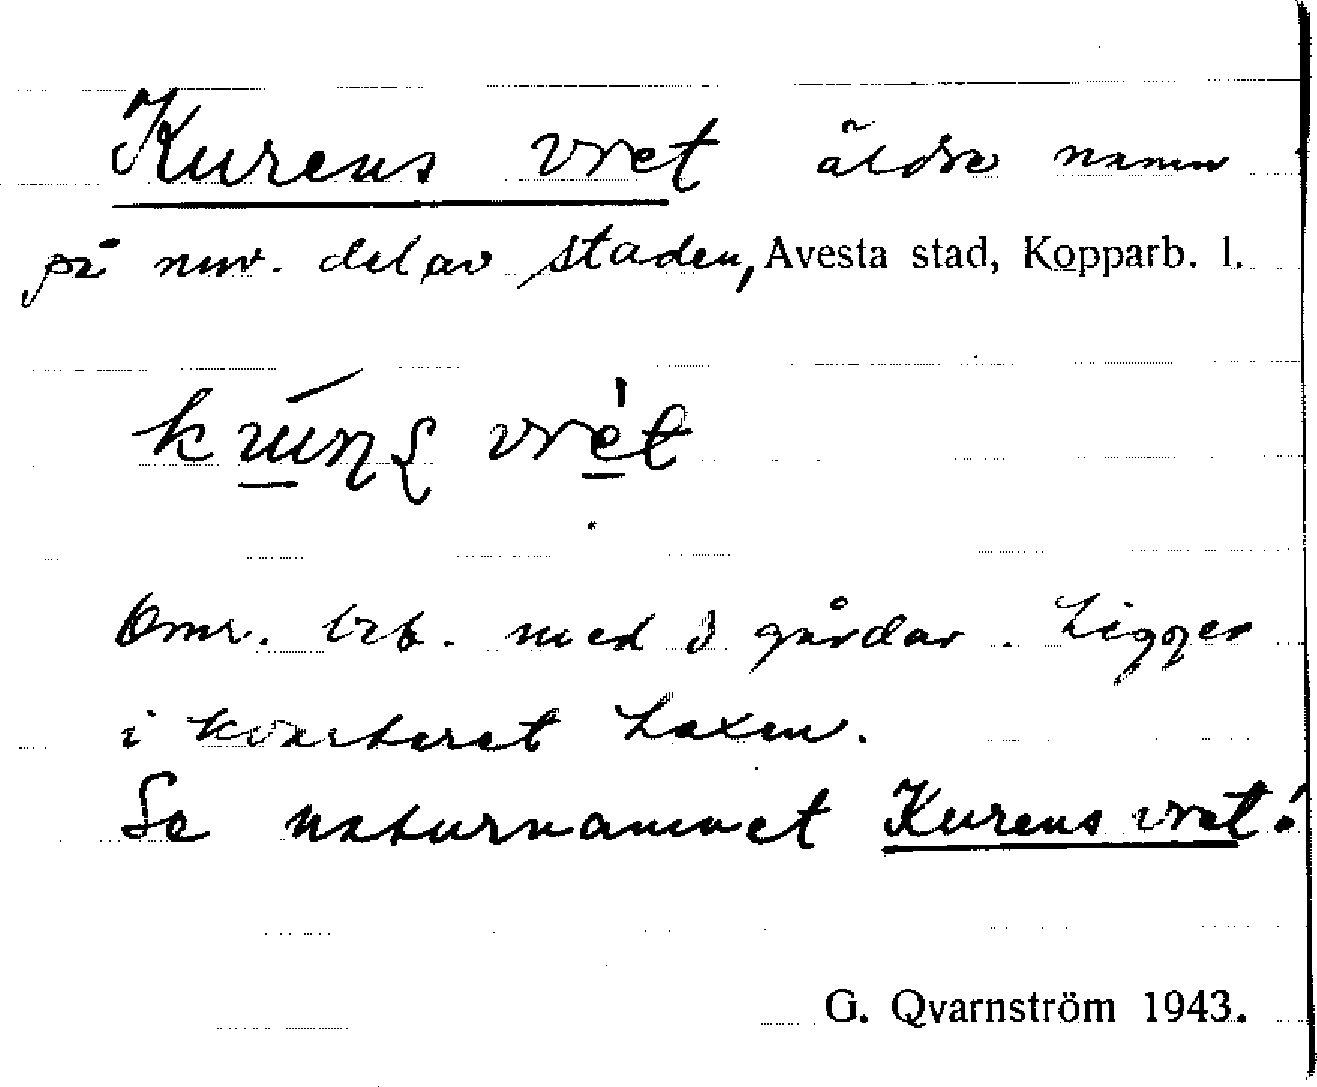 Kurens vret äldre namn
på nuv. del av staden, Avesta stad, Kopparb. l.
vrét
Omr. beb. med 3 gårdar. Ligger
i kvarteret Laxen.
Se naturnamnet Kurens vret!
G. Qvarnström 1943.